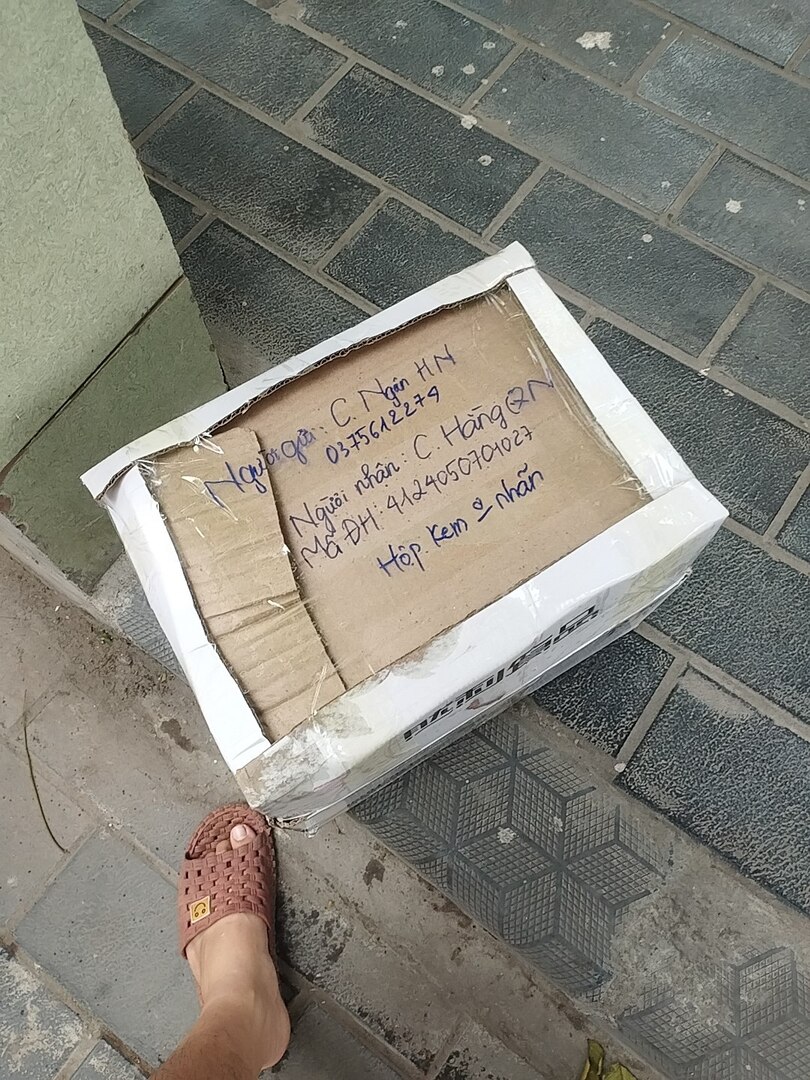 Người gửi: C. Ngân HN
0375612274
Người nhân: C. Hằng QN
Mã ĐH: 4124050701027
Hộp kem ủ nhãn